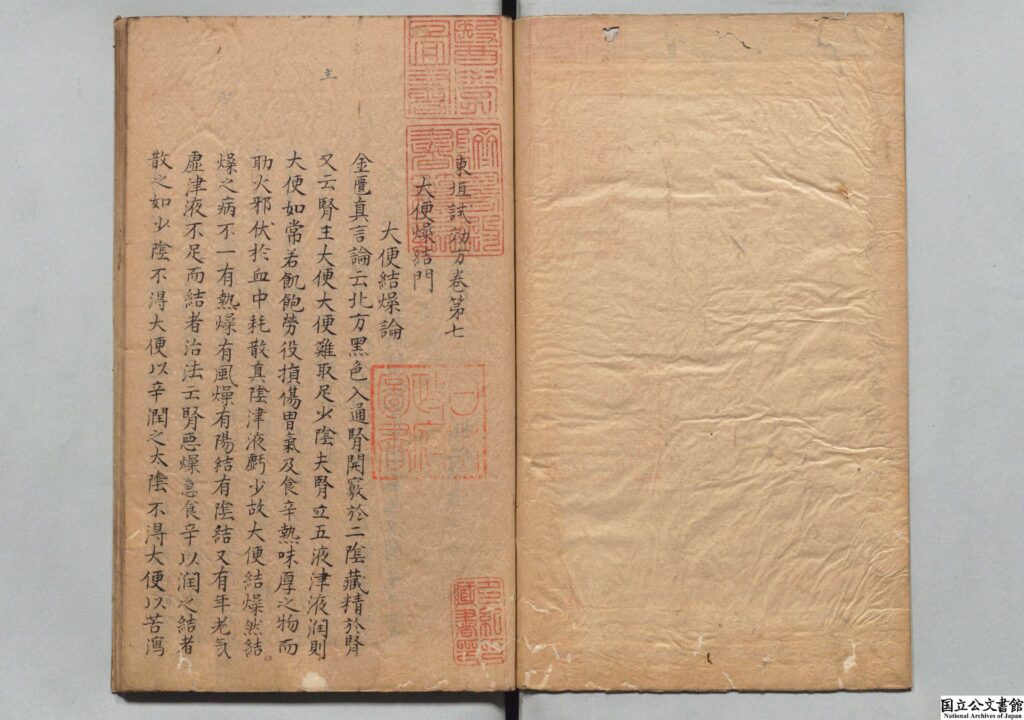 東垣試効方卷第七
大便燥結門
大便結燥論
金匱真言論云北方黑色入通腎開竅於二陰藏精於腎
又云腎主大便大便難取足少陰夫腎立五液津液潤則
大便如常若飢飽勞役損傷胃氣及食辛熱味厚之物而
助火邪伏於血中耗散真陰津液虧少故大便結燥然結
燥之病不一有熱燥有風燥有陽結有陰結又有年老氣
虛津液不足而結者治法云腎惡燥急食辛以潤之結者
散之如少陰不得大便以辛潤之太陰不得大便以苦瀉
日本
政府
圖書
国立公文書館
National Archives of Japan